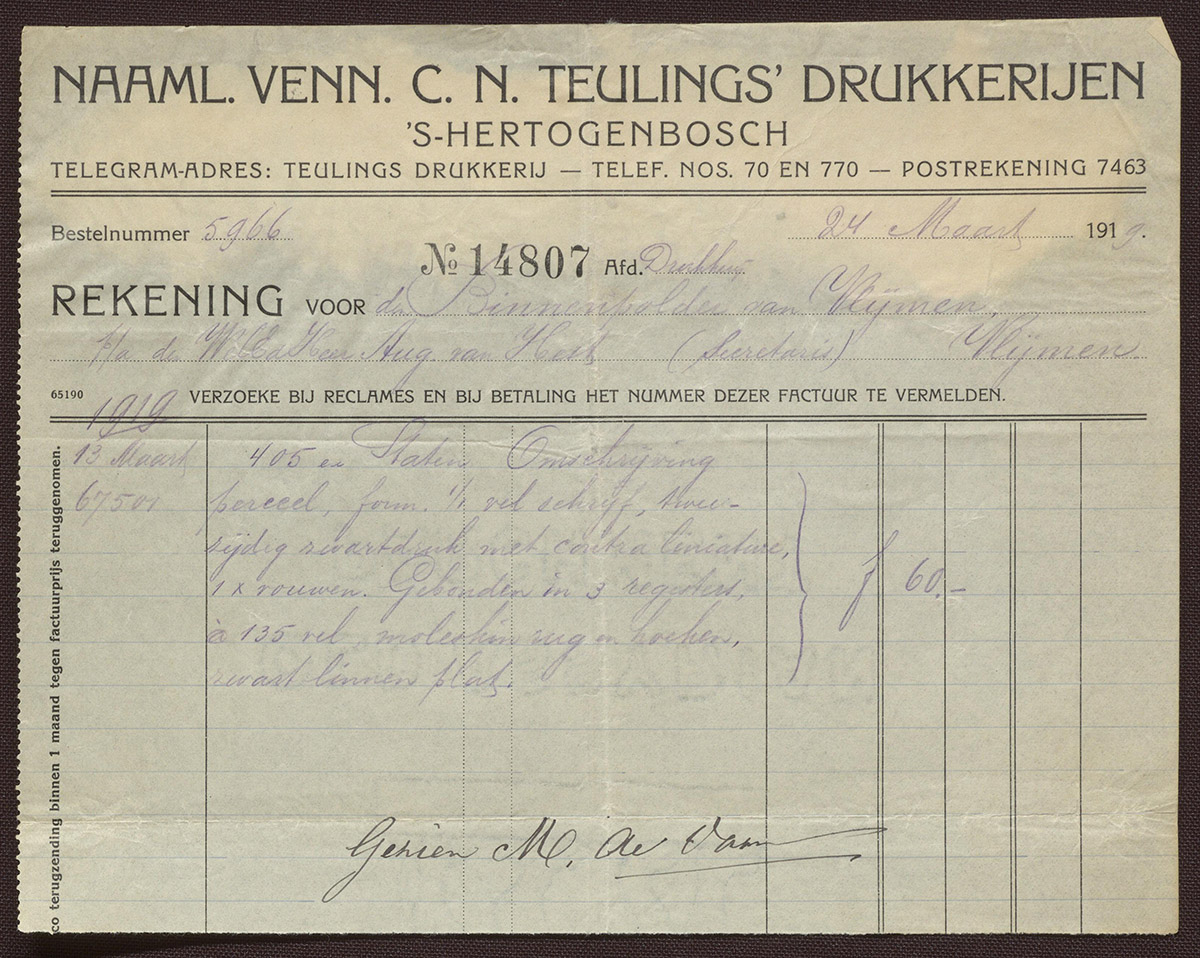 NAAML. VENN. C. N. TEULINGS' DRUKKERIJEN
'S-HERTOGENBOSCH
TELEGRAM-ADRES: TEULINGS DRUKKERIJ — TELEF. NOS. 70 EN 770 — POSTREKENING 7463
Bestelnummer 5966 24 Maart 1919.
No 14807 Afd. Drukkerij
REKENING VOOR den Binnenpolder van Vlijmen,
p/a den Heer Aug van (Secretaris) Vlijmen
65190 VERZOEKE BIJ RECLAMES EN BIJ BETALING HET NUMMER DEZER FACTUUR TE VERMELDEN.
1919
13 Maart 405 ex Staten Omschrijving
67501 perceel, form. 1/1 vel schrijf, twee-
zijdig zwartdruk met contra liniature,
1 x vouwen. Gebonden in 3 registers, f 60.-
à 135 vel, moleskin rug en hoeken,
zwart linnen plat.
Gezien M. de Vaan
co terugzending binnen 1 maand tegen factuurprijs teruggenomen.